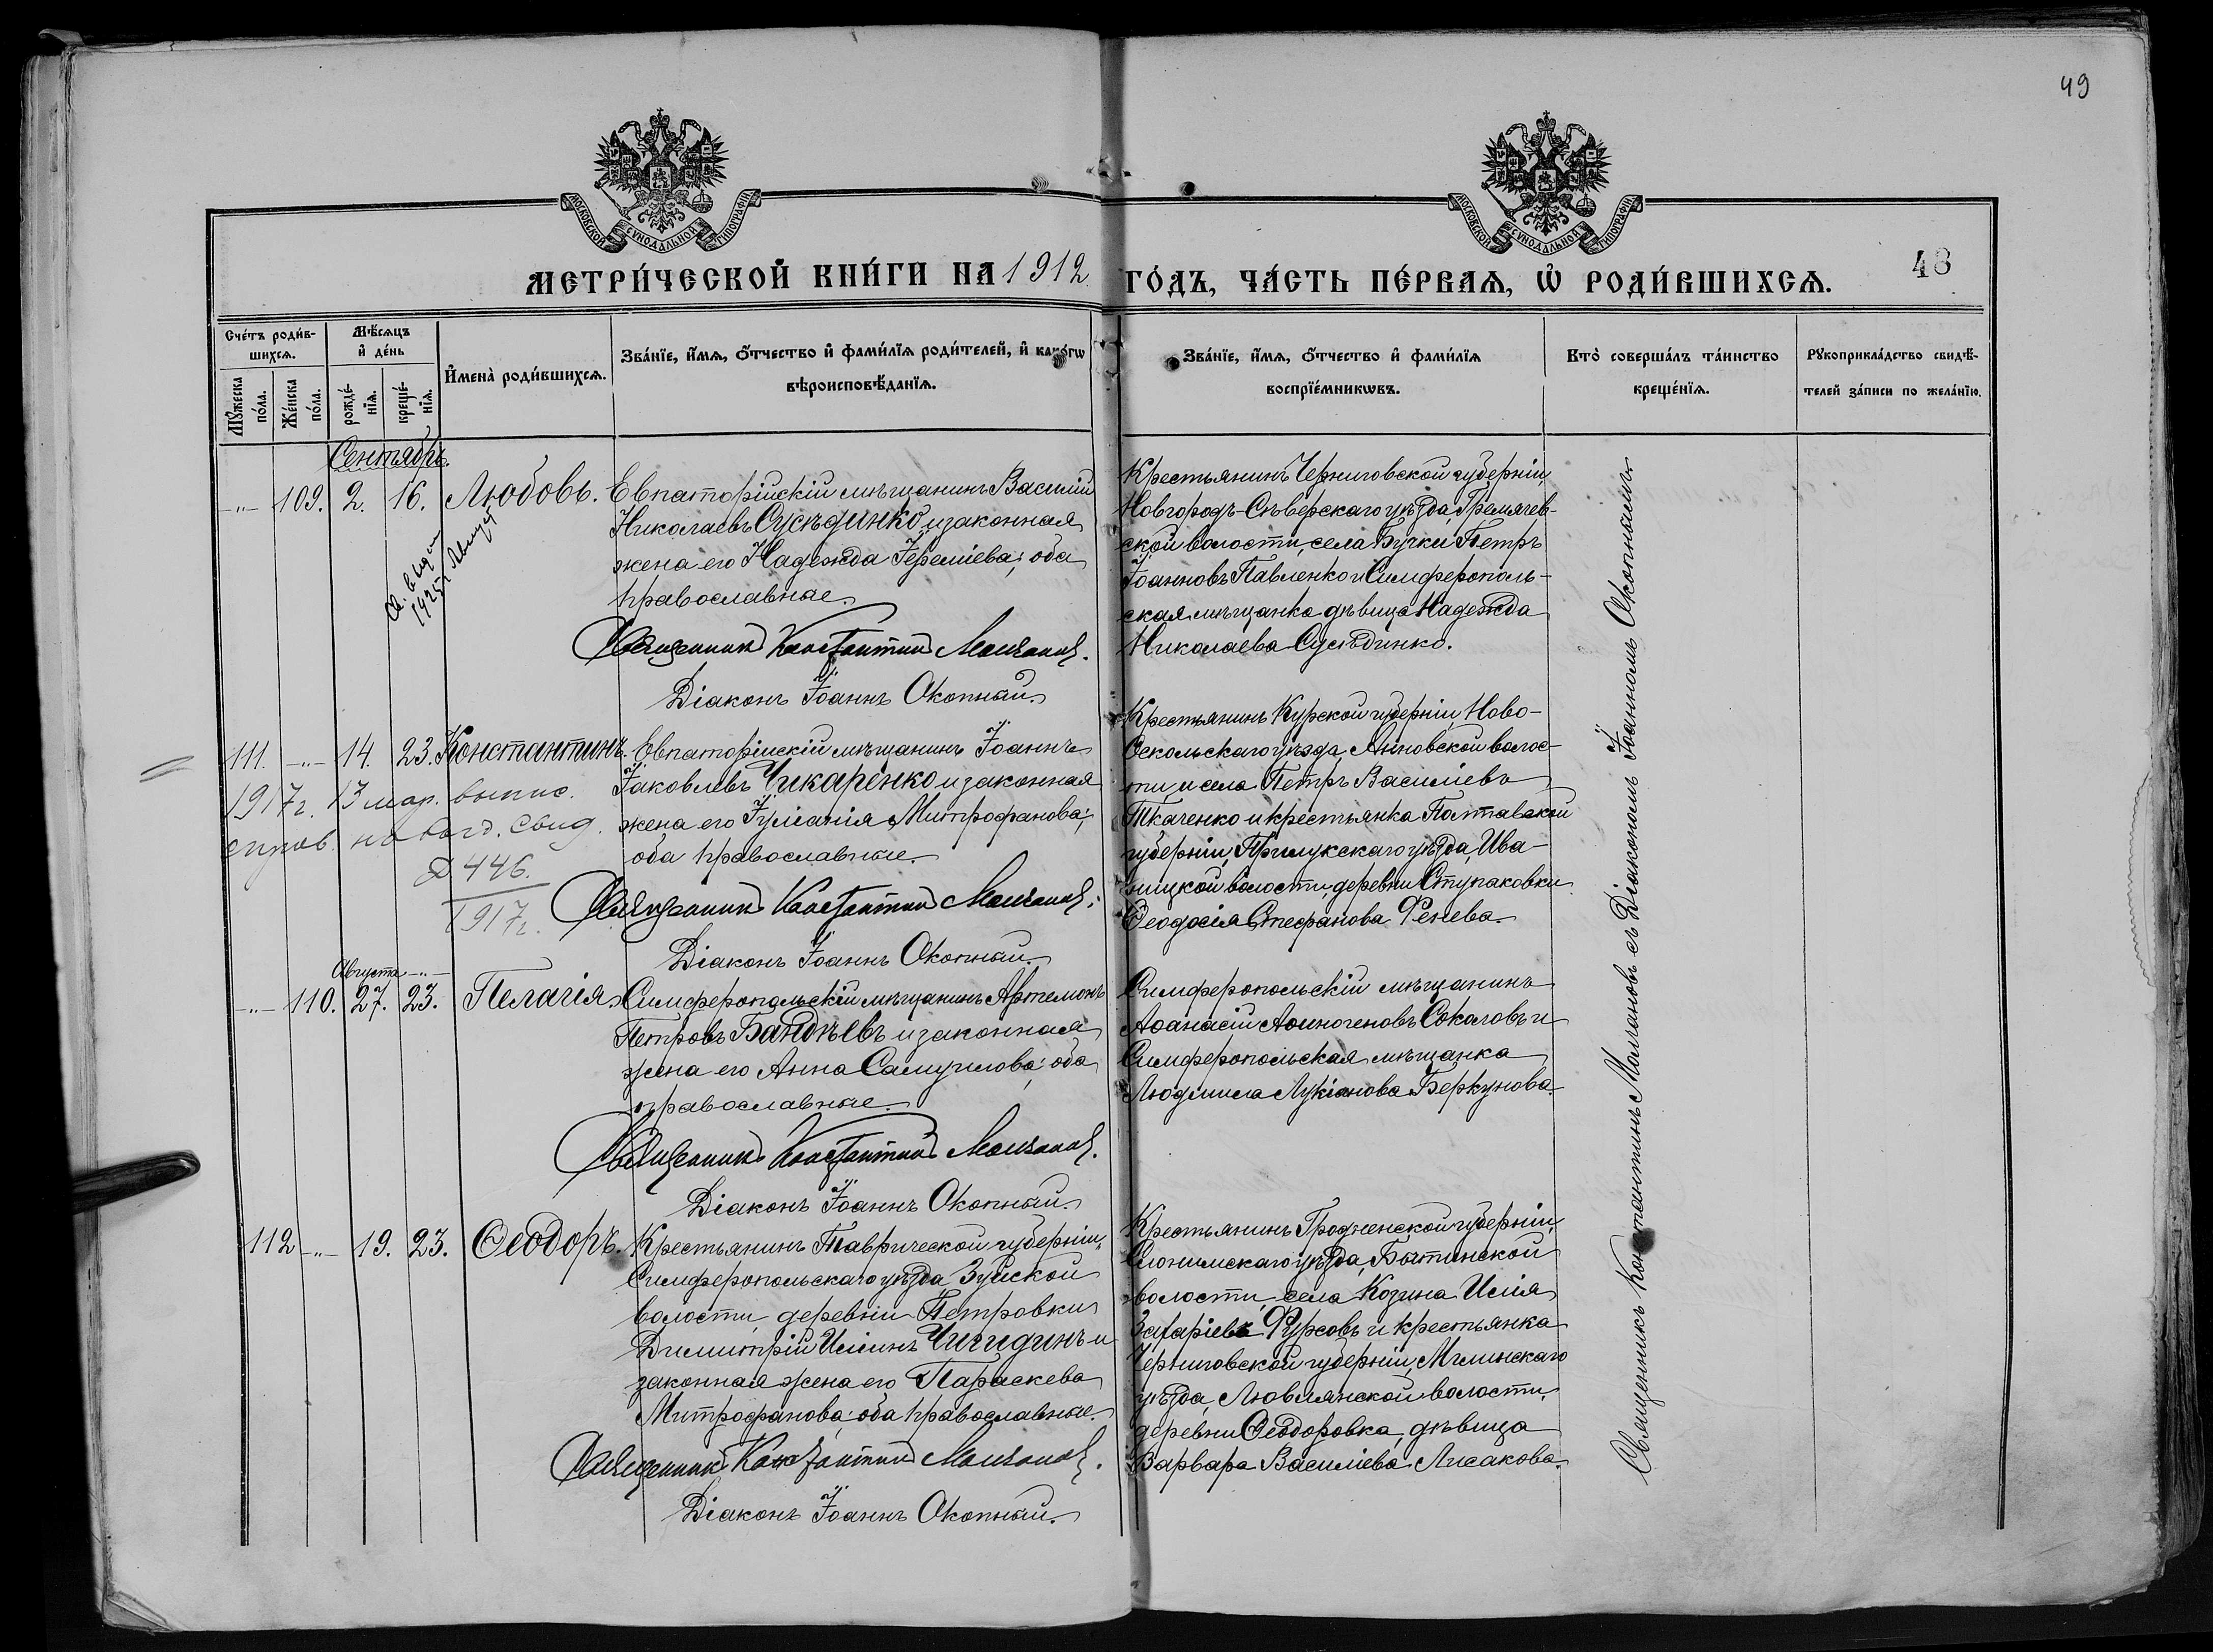 49
МОСКОВСКОЙ СѴНОДАЛЬНОЙ ТИПОГРАФІИ
МОСКОВСКОЙ СѴНОДАЛЬНОЙ ТИПОГРАФІИ
МЕТРИ́ЧЕСКОЙ КНИ́ГИ НА 1912 ГО́ДЪ, ЧА́СТЬ ПЕ́РВАѦ, Ѡ РОДИ́ВШИХСѦ.
48
Сче́тъ роди́в-
шихсѧ.
Мꙋжеска
по́ла.
Же́нска
по́ла.
Мѣ́сѧцъ
и҆ де́нь
рожде́-
нїѧ.
креще́-
нїѧ.
И҆мена̀ роди́вшихсѧ.
Зва́нїе, и҆́мѧ, о҆́тчество и҆ фами́лїѧ роди́телей, и҆ како́гѡ
вѣроисповѣ́данїѧ.
Зва́нїе, и҆́мѧ, о҆́тчество и҆ фами́лїѧ
воспрїе́мникѡвъ.
Кто̀ соверша́лъ та́инство
креще́нїѧ.
Рꙋкоприкла́дство свидѣ́-
телей за́писи по жела́нїю.
Сентябрь.
-"- 109. 2. 16. Любовь.
Евпаторійскій мѣщанинъ Василій
Николаевъ Сусѣдинко и законная
жена его Надежда Іереміева; оба
православные.
Священникъ Константинъ Молчановъ.
Діаконъ Іоаннъ Окопный.
Крестьянинъ Черниговской губерніи
Новгородъ-Сѣверскаго уѣзда, Гремячев-
ской волости, села Бучки Петръ
Іоанновъ Павленко и Симферополь-
ская мѣщанка дѣвица Надежда
Николаева Сусѣдинко.
Священникъ Константинъ Молчановъ съ Діакономъ Іоанномъ Окопнымъ
1925
111. -"- 14. 23. Константинъ.
1917г. 13 мар. выпис.
446.
1917г.
Евпаторійскій мѣщанинъ Іоаннъ
Іаковлевъ Чикаренко и законная
жена его Іуліанія Митрофанова;
оба православные.
Священникъ Константинъ Молчановъ.
Діаконъ Іоаннъ Окопный.
Крестьянинъ Курской губерніи, Ново-
Оскольскаго уѣзда, Анновской волос-
ти и села Петръ Василіевъ
Ткаченко и крестьянка Полтавской
губерніи, Прилукскаго уѣзда, Ива-
ницкой волости, деревни Ступаковки
Ѳеодосія Стефанова Фенева.
Августа -"-
-"- 110. 27. 23. Пелагія.
Симферопольскій мѣщанинъ Артемонъ
Петровъ Бандѣевъ и законная
жена его Анна Самуилова; оба
православные.
Священникъ Константинъ Молчановъ.
Діаконъ Іоаннъ Окопный.
Симферопольскій мѣщанинъ
Аѳанасій Аѳиногеновъ Соколовъ и
Симферопольская мѣщанка
Людмила Лукіанова Беркунова.
112 -"- 19. 23. Ѳеодоръ.
Крестьянинъ Таврической губерніи,
Симферопольскаго уѣзда Зуйской
волости, деревни Петровки
Димитрій Иліинъ Чигидинъ и
законная жена его Параскева
Митрофанова; оба православные.
Священникъ Константинъ Молчановъ.
Діаконъ Іоаннъ Окопный.
Крестьянинъ Гродненской губерніи,
Слонимскаго уѣзда, Бытинской
волости, села Козина Илія
Захаріевъ Фурсовъ и крестьянка
Черниговской губерніи, Мглинскаго
уѣзда, волости,
деревни Ѳеодоровка, дѣвица
Варвара Василіева Лисакова.